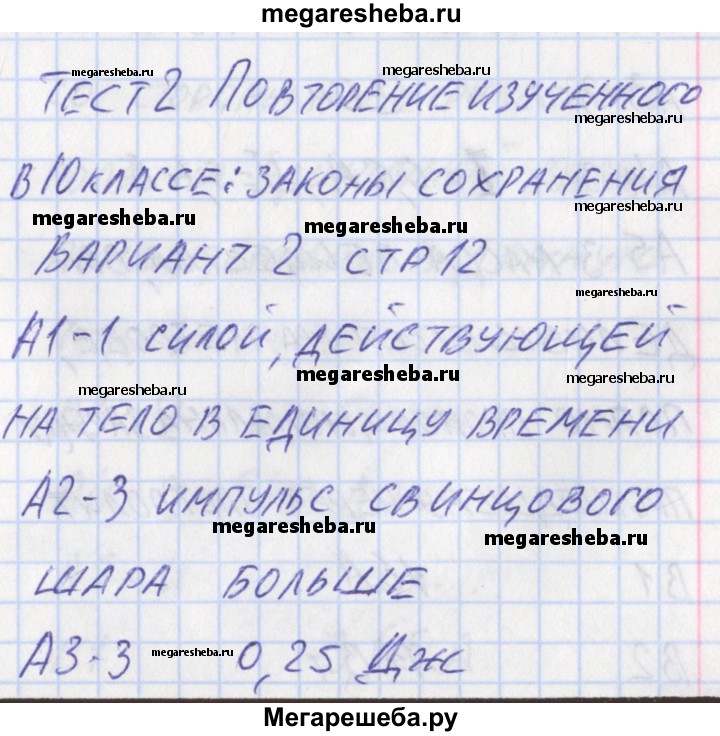 megaresheba.ru
megaresheba.ru megaresheba.ru
ТЕСТ 2 ПОВТОРЕНИЕ ИЗУЧЕННОГО
megaresheba.ru
В 10 КЛАССЕ: ЗАКОНЫ СОХРАНЕНИЯ
megaresheba.ru megaresheba.ru megaresheba.ru
ВАРИАНТ 2 СТР 12
megaresheba.ru
А1-1 СИЛОЙ, ДЕЙСТВУЮЩЕЙ
megaresheba.ru megaresheba.ru megaresheba.ru
НА ТЕЛО В ЕДИНИЦУ ВРЕМЕНИ
А2-3 ИМПУЛЬС СВИНЦОВОГО
megaresheba.ru megaresheba.ru
ШАРА БОЛЬШЕ
А3-3 megaresheba.ru 0,25 Дж
Мегарешеба.ру